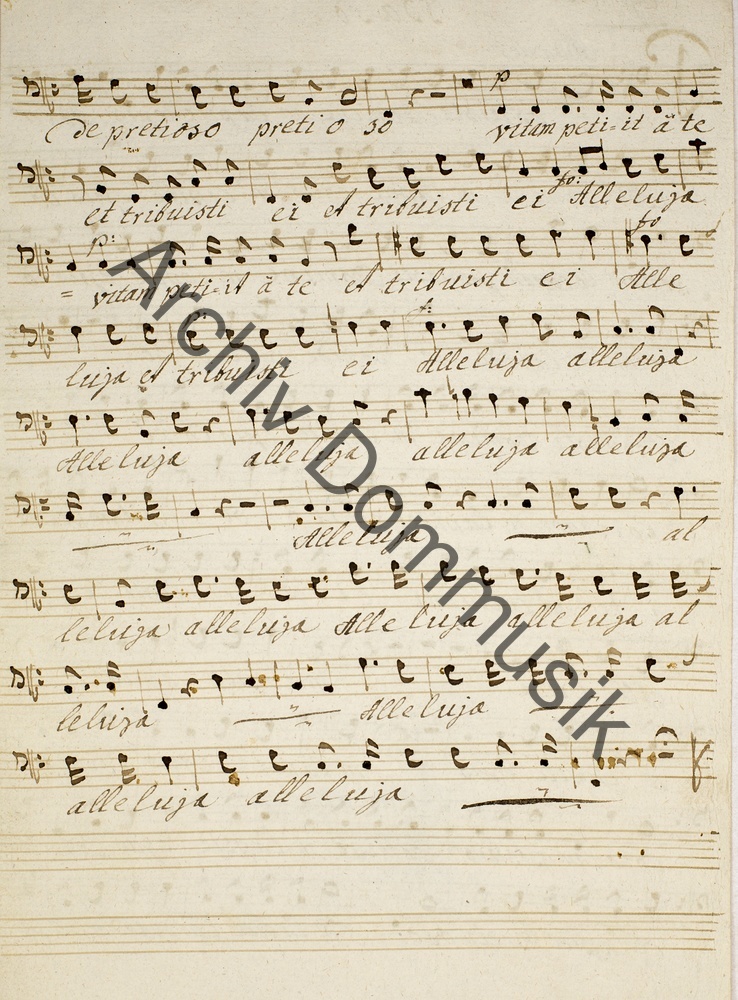 p
de pretioso pretioso vitam peti=it à te
fo:
et tribuisti ei et tribuisti ei Alleluja
p: fo
= vitam peti=it à te et tribuisti ei Alle
f:
luja et tribuisti ei Alleluja alleluja
Alleluja alleluja alleluja alleluja
Alleluja al
leluja alleluja Alleluja alleluja al
leluja Alleluja
alleluja alleluja
Archiv Dommusik